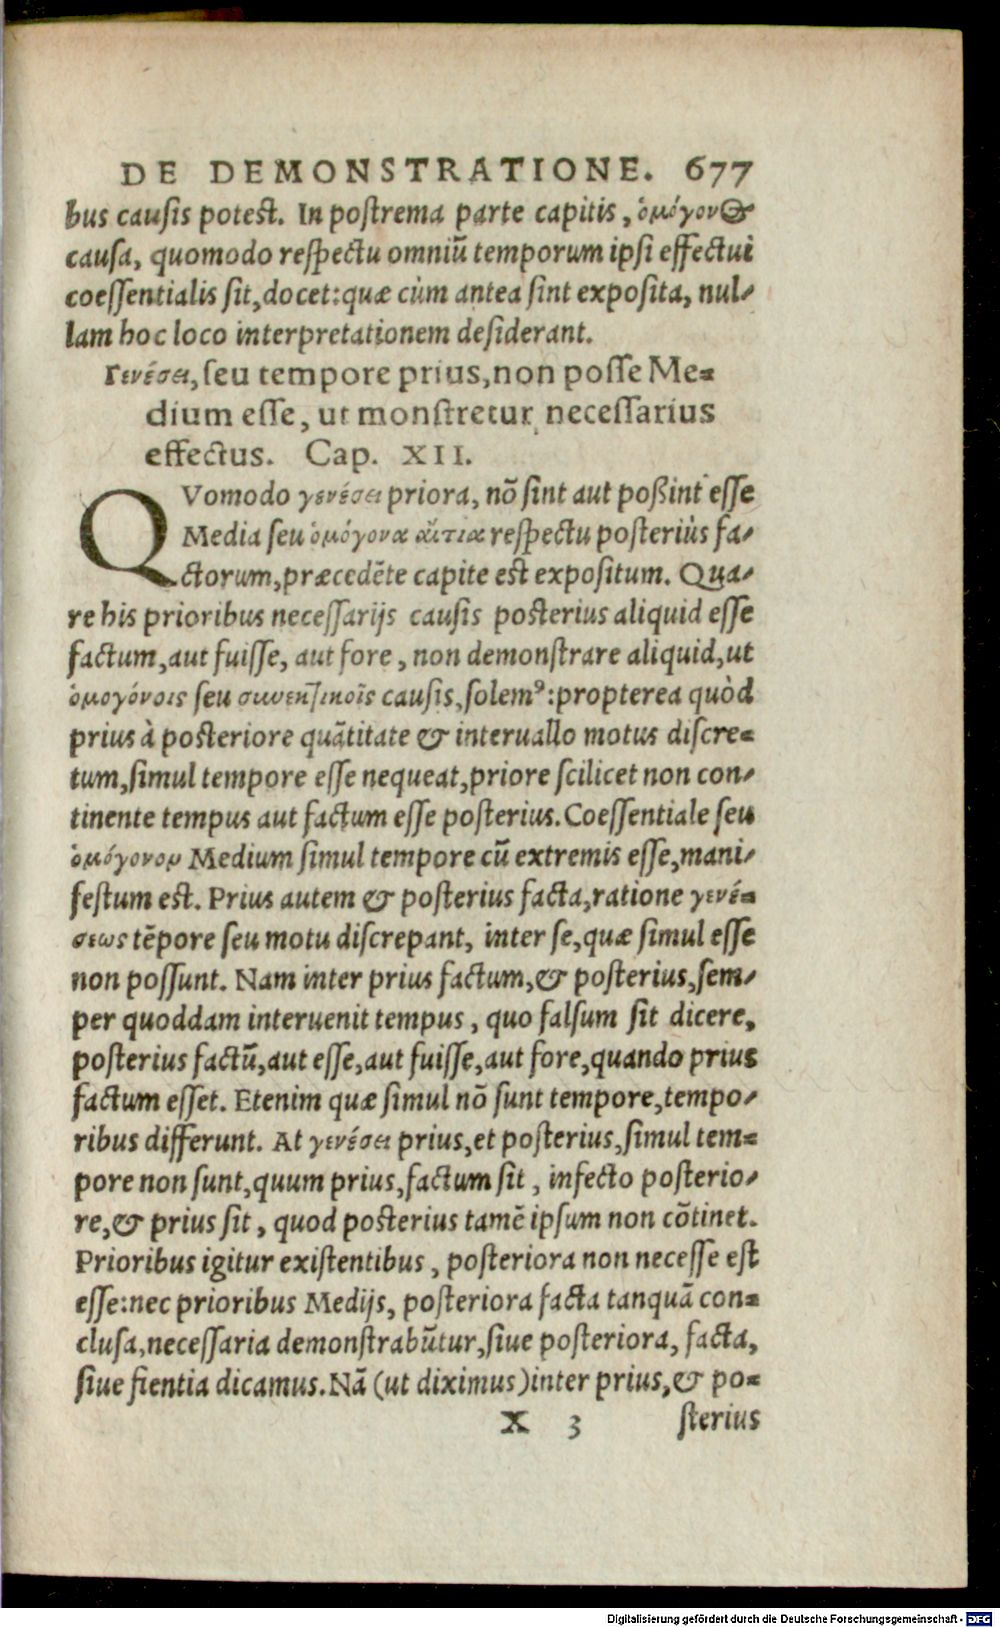 DE DEMONSTRATIONE. 677
bus causis potest. In postrema parte capitis, ὁμόγονος
causa, quomodo respectu omniū temporum ipsi effectui
coessentialis sit, docet: quæ cùm antea sint exposita, nul-
lam hoc loco interpretationem desiderant.
Γενέσει, seu tempore prius, non posse Me-
dium esse, ut monstretur necessarius
effectus. Cap. XII.
QVomodo γενέσει priora, nō sint aut poßint esse
Media seu ὁμόγονα αἴτια respectu posteriùs fa-
ctorum, præcedēte capite est expositum. Qua-
re his prioribus necessarijs causis posterius aliquid esse
factum, aut fuisse, aut fore, non demonstrare aliquid, ut
ὁμογόνοις seu συνεκτικοῖς causis, solemꝰ: propterea quòd
prius à posteriore quātitate & interuallo motus discre-
tum, simul tempore esse nequeat, priore scilicet non con-
tinente tempus aut factum esse posterius. Coessentiale seu
ὁμόγονον Medium simul tempore cū extremis esse, mani-
festum est. Prius autem & posterius facta, ratione γενέ-
σεως tēpore seu motu discrepant, inter se, quæ simul esse
non possunt. Nam inter prius factum, & posterius, sem-
per quoddam interuenit tempus, quo falsum sit dicere,
posterius factū, aut esse, aut fuisse, aut fore, quando prius
factum esset. Etenim quæ simul nō sunt tempore, tempo-
ribus differunt. At γενέσει prius, et posterius, simul tem-
pore non sunt, quum prius, factum sit, infecto posterio-
re, & prius sit, quod posterius tamē ipsum non cōtinet.
Prioribus igitur existentibus, posteriora non necesse est
esse: nec prioribus Medijs, posteriora facta tanquā con-
clusa, necessaria demonstrabūtur, siue posteriora, facta,
siue fientia dicamus. Nā (ut diximus) inter prius, & po-
X 3 sterius
Digitalisierung gefördert durch die Deutsche Forschungsgemeinschaft - DFG